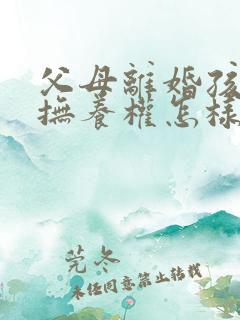 父母離婚孩
撫養權怎樣
莞冬
未经同意禁止转载